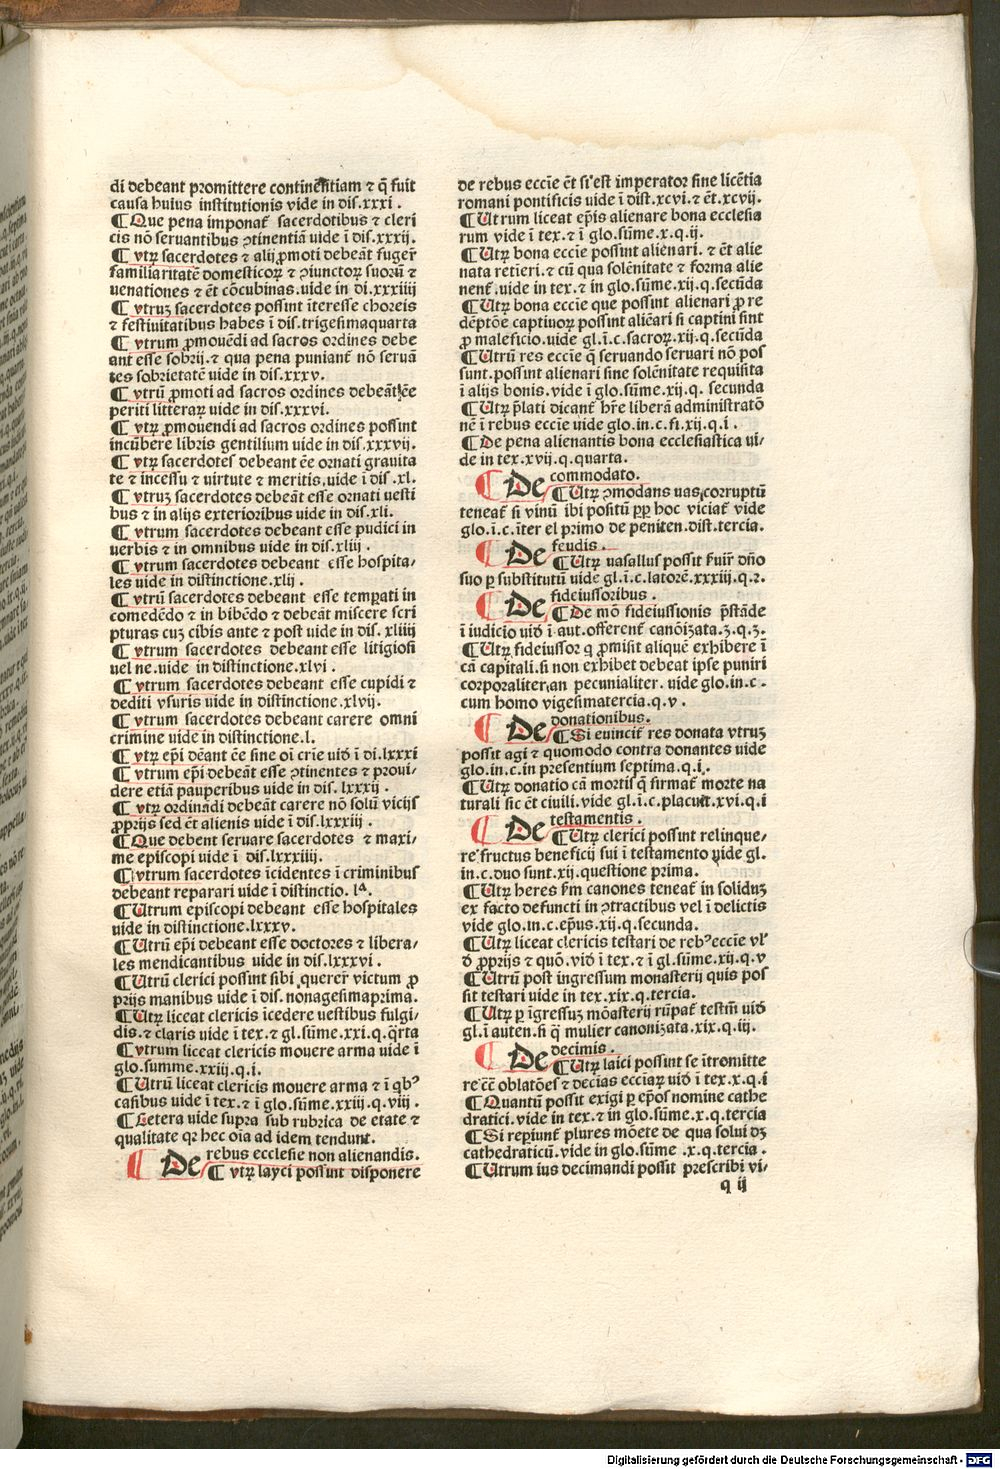 di debeant promittere continentiam ⁊ q̄ fuit
causa huius institutionis vide in dis.xxxi .
¶ Que pena imponat͛ sacerdotibus ⁊ cleri
cis nō seruantibus ꝯtinentiā uide ī dis.xxxij.
¶ vtrꝝ sacerdotes ⁊ alij ꝓmoti debeāt fuger͛
familiaritatē domesticoꝝ ⁊ ꝯiunctoꝝ suoꝝ ⁊
uenationes ⁊ ēt cōcubinas.uide in di.xxxiiij
¶ vtruꝫ sacerdotes possint īteresse choreis
⁊ festiuitatibus habes ī dis.trigesimaquarta
¶ vtrum ꝓmouēdi ad sacros ordines debe
ant esse sobrij.⁊ qua pena puniant͛ nō seruā
tes sobrietatē uide in dis.xxxv.
¶ vtrū ꝓmoti ad sacros ordines debeāt ēe
periti litteraꝝ uide in dis.xxxvi.
¶ vtꝝ ꝓmouendi ad sacros ordines possint
incūbere libris gentilium uide in dis.xxxvij.
¶ vtꝝ sacerdotes debeant ēe ornati grauita
te ⁊ incessu ⁊ virtute ⁊ meritis.uide ī dis .xl.
¶ vtruꝫ sacerdotes debeāt esse ornati uesti
bus ⁊ in alijs exterioribus uide in dis.xli.
¶ vtrum sacerdotes debeant esse pudici in
uerbis ⁊ in omnibus uide in dis.xliij .
¶ vtrum sacerdotes debeant esse hospita/
les uide in distinctione.xlij .
¶ vtrū sacerdotes debeant esse temꝑati in
comedēdo ⁊ in bibēdo ⁊ debeāt miscere scri
pturas cuꝫ cibis ante ⁊ post uide in dis. xliiij
¶ vtrum sacerdotes debeant esse litigiosi
uel ne.uide in distinctione.xlvi .
¶ vtrum sacerdotes debeant esse cupidi ⁊
dediti vsuris uide in distinctione.xlvij.
¶ vtrum sacerdotes debeant carere omni
crimine uide in distinctione.l.
¶ vtꝝ ep̄i dēant ēe sine oi crīe uid̄ ī di.lxxxi
¶ vtrum ep̄i debeāt esse ꝯtinentes ⁊ proui/
dere etiā pauperibus uide in dis. lxxxij .
¶ vtꝝ ordinādi debeāt carere nō solū vicijs
ꝓprijs sed ēt alienis uide ī dis.lxxxiij .
¶ Que debent seruare sacerdotes ⁊ maxi/
me episcopi uide ī dis.lxxxiiij.
¶ vtrum sacerdotes īcidentes ī criminibus
debeant reparari uide ī distinctio. lª.
¶ Utrum episcopi debeant esse hospitales
uide in distinctione.lxxxv.
¶ Utrū ep̄i debeant esse doctores ⁊ libera/
les mendicantibus uide in dis.lxxxvi .
¶ Utrū clerici possint sibi querer͛ victum ꝓ
prijs manibus uide ī dis. nonagesimaprima.
¶ Utꝝ liceat clericis īcedere uestibus fulgi/
dis.⁊ claris uide ī tex.⁊ gl.sūme.xxi.q.q̄rta
¶ vtrum liceat clericis mouere arma uide ī
glo.summe.xxiij.q.i.
¶ Utrū liceat clericis mouere arma ⁊ ī qbꝰ
casibus uide ī tex.⁊ ī glo.sūme.xxiij.q.viij .
¶ Cetera uide supra sub rubrica de etate ⁊
qualitate qꝛ hec oīa ad idem tendunt.
¶ De rebus ecclesie non alienandis.
¶ vtꝝ layci possint disponere
de rebus eccīe ēt si'est imperator sine licētia
romani pontificis uide ī dist.xcvi.⁊ ēt.xcvij.
¶ Utrum liceat ep̄is alienare bona ecclesia
rum vide ī tex.⁊ ī glo.sūme.x.q.ij.
¶ Utꝝ bona eccīe possint alienari.⁊ ēt alie
nata retieri.⁊ cū qua solēnitate ⁊ forma alie
nent͛.uide in tex.⁊ in glo.sūme.xij.q.secūda
¶ Utꝝ bona eccīe que possint alienari ꝓ re
dēptōe captiuoꝝ possint aliēari si captini sint
ꝓ maleficio.uide gl.ī.c.sacroꝝ.xij.q.secūda
¶ Utrū res eccīe q̄ seruando seruari nō pos
sunt.possint alienari sine solēnitate requisita
ī alijs bonis.vide ī glo.sūme.xij.q. secunda
¶ Utꝝ p̄lati dicant͛ hr̄e liberā administratō
nē ī rebus eccīe uide glo.in.c.fi.xij.q.i .
¶ De pena alienantis bona ecclesiastica ui/
de in tex.xvij.q.quarta.
¶ De commodato.
¶ Utꝝ ꝯmodans uas corruptū
teneat͛ si vinū ibi positū ꝓp hoc viciat͛ vide
glo.ī.c.īter el primo de peniten.dist.tercia.
¶ De feudis .
¶ Utꝝ uasallus possit ẜuir͛ dn̄o
suo ꝑ substitutū uide gl.ī.c.latorē.xxxiij.q.2.
¶ De fideiussoribus .
¶ De mō fideiussionis p̄stāde
ī iudicio uid̄ ī aut.offerent͛ canōizata.3.q.3.
¶ Utꝝ fideiussor q ꝓmisit aliquē exhibere ī
cā capitali.si non exhibet debeat ipse puniri
corporaliter.an pecunialiter. uide glo.in.c .
cum homo vigesimatercia.q.v .
¶ De donationibus.
¶ Si euincit͛ res donata vtruꝫ
possit agi ⁊ quomodo contra donantes uide
glo.in.c.in presentium septima.q.i.
¶ Utꝝ donatio cā mortis q̄ firmat͛ morte na
turali sic ēt ciuili.vide gl.ī.c.placuit.xvi.q.i
¶ De testamentis .
¶ Utꝝ clerici possint relinque/
re fructus beneficij sui ī testamento vide gl.
in.c.duo sunt.xij.questione prima.
¶ Utꝝ heres ẜm canones teneat͛ in soliduꝫ
ex facto defuncti in ꝯtractibus vel ī delictis
vide glo.in.c.ep̄us.xij.q.secunda.
¶ Utꝝ liceat clericis testari de rebꝰ eccīe vl'
d̄ ꝓprijs ⁊ quō.vid̄ ī tex.⁊ ī gl.sūme.xij.q.v
¶ Utrū post ingressum monasterij quis pos
sit testari uide in tex.xix.q.tercia.
¶ Utꝝ ꝑ īgressuꝫ mōasterij rūpat͛ testm̄ uid̄
gl.ī auten.si q̄ mulier canonizata.xix.q.iij.
¶ De decimis .
¶ Utꝝ laici possint se ītromitte
re cē oblatōes ⁊ decīas ecciaꝝ uid̄ ī tex.x.q.i
¶ Quantū possit exigi ꝑ ep̄os nomine cathe
dratici.vide in tex.⁊ in glo.sūme.x.q.tercia
¶ Si reꝑiunt͛ plures mōete de qua solui dꝫ
cathedraticū.vide in glo.sūme .x.q.tercia .
¶ Utrum ius decimandi possit prescribi vi/
q ij
Digitalisierung gefördert durch die Deutsche Forschungsgemeinschaft - DFG